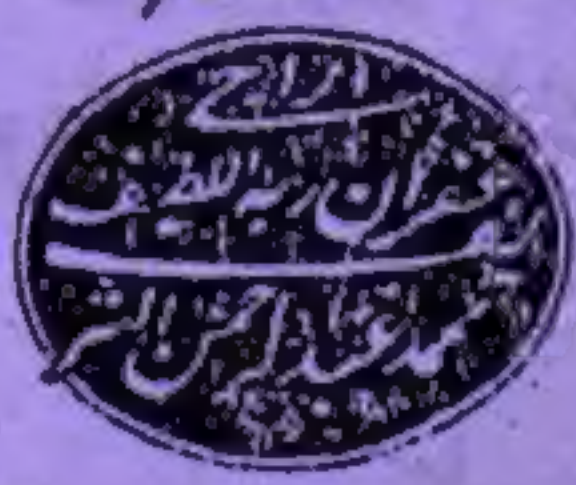 الراجي
غفران ربه اللطيف
محمد عبد الرحمن